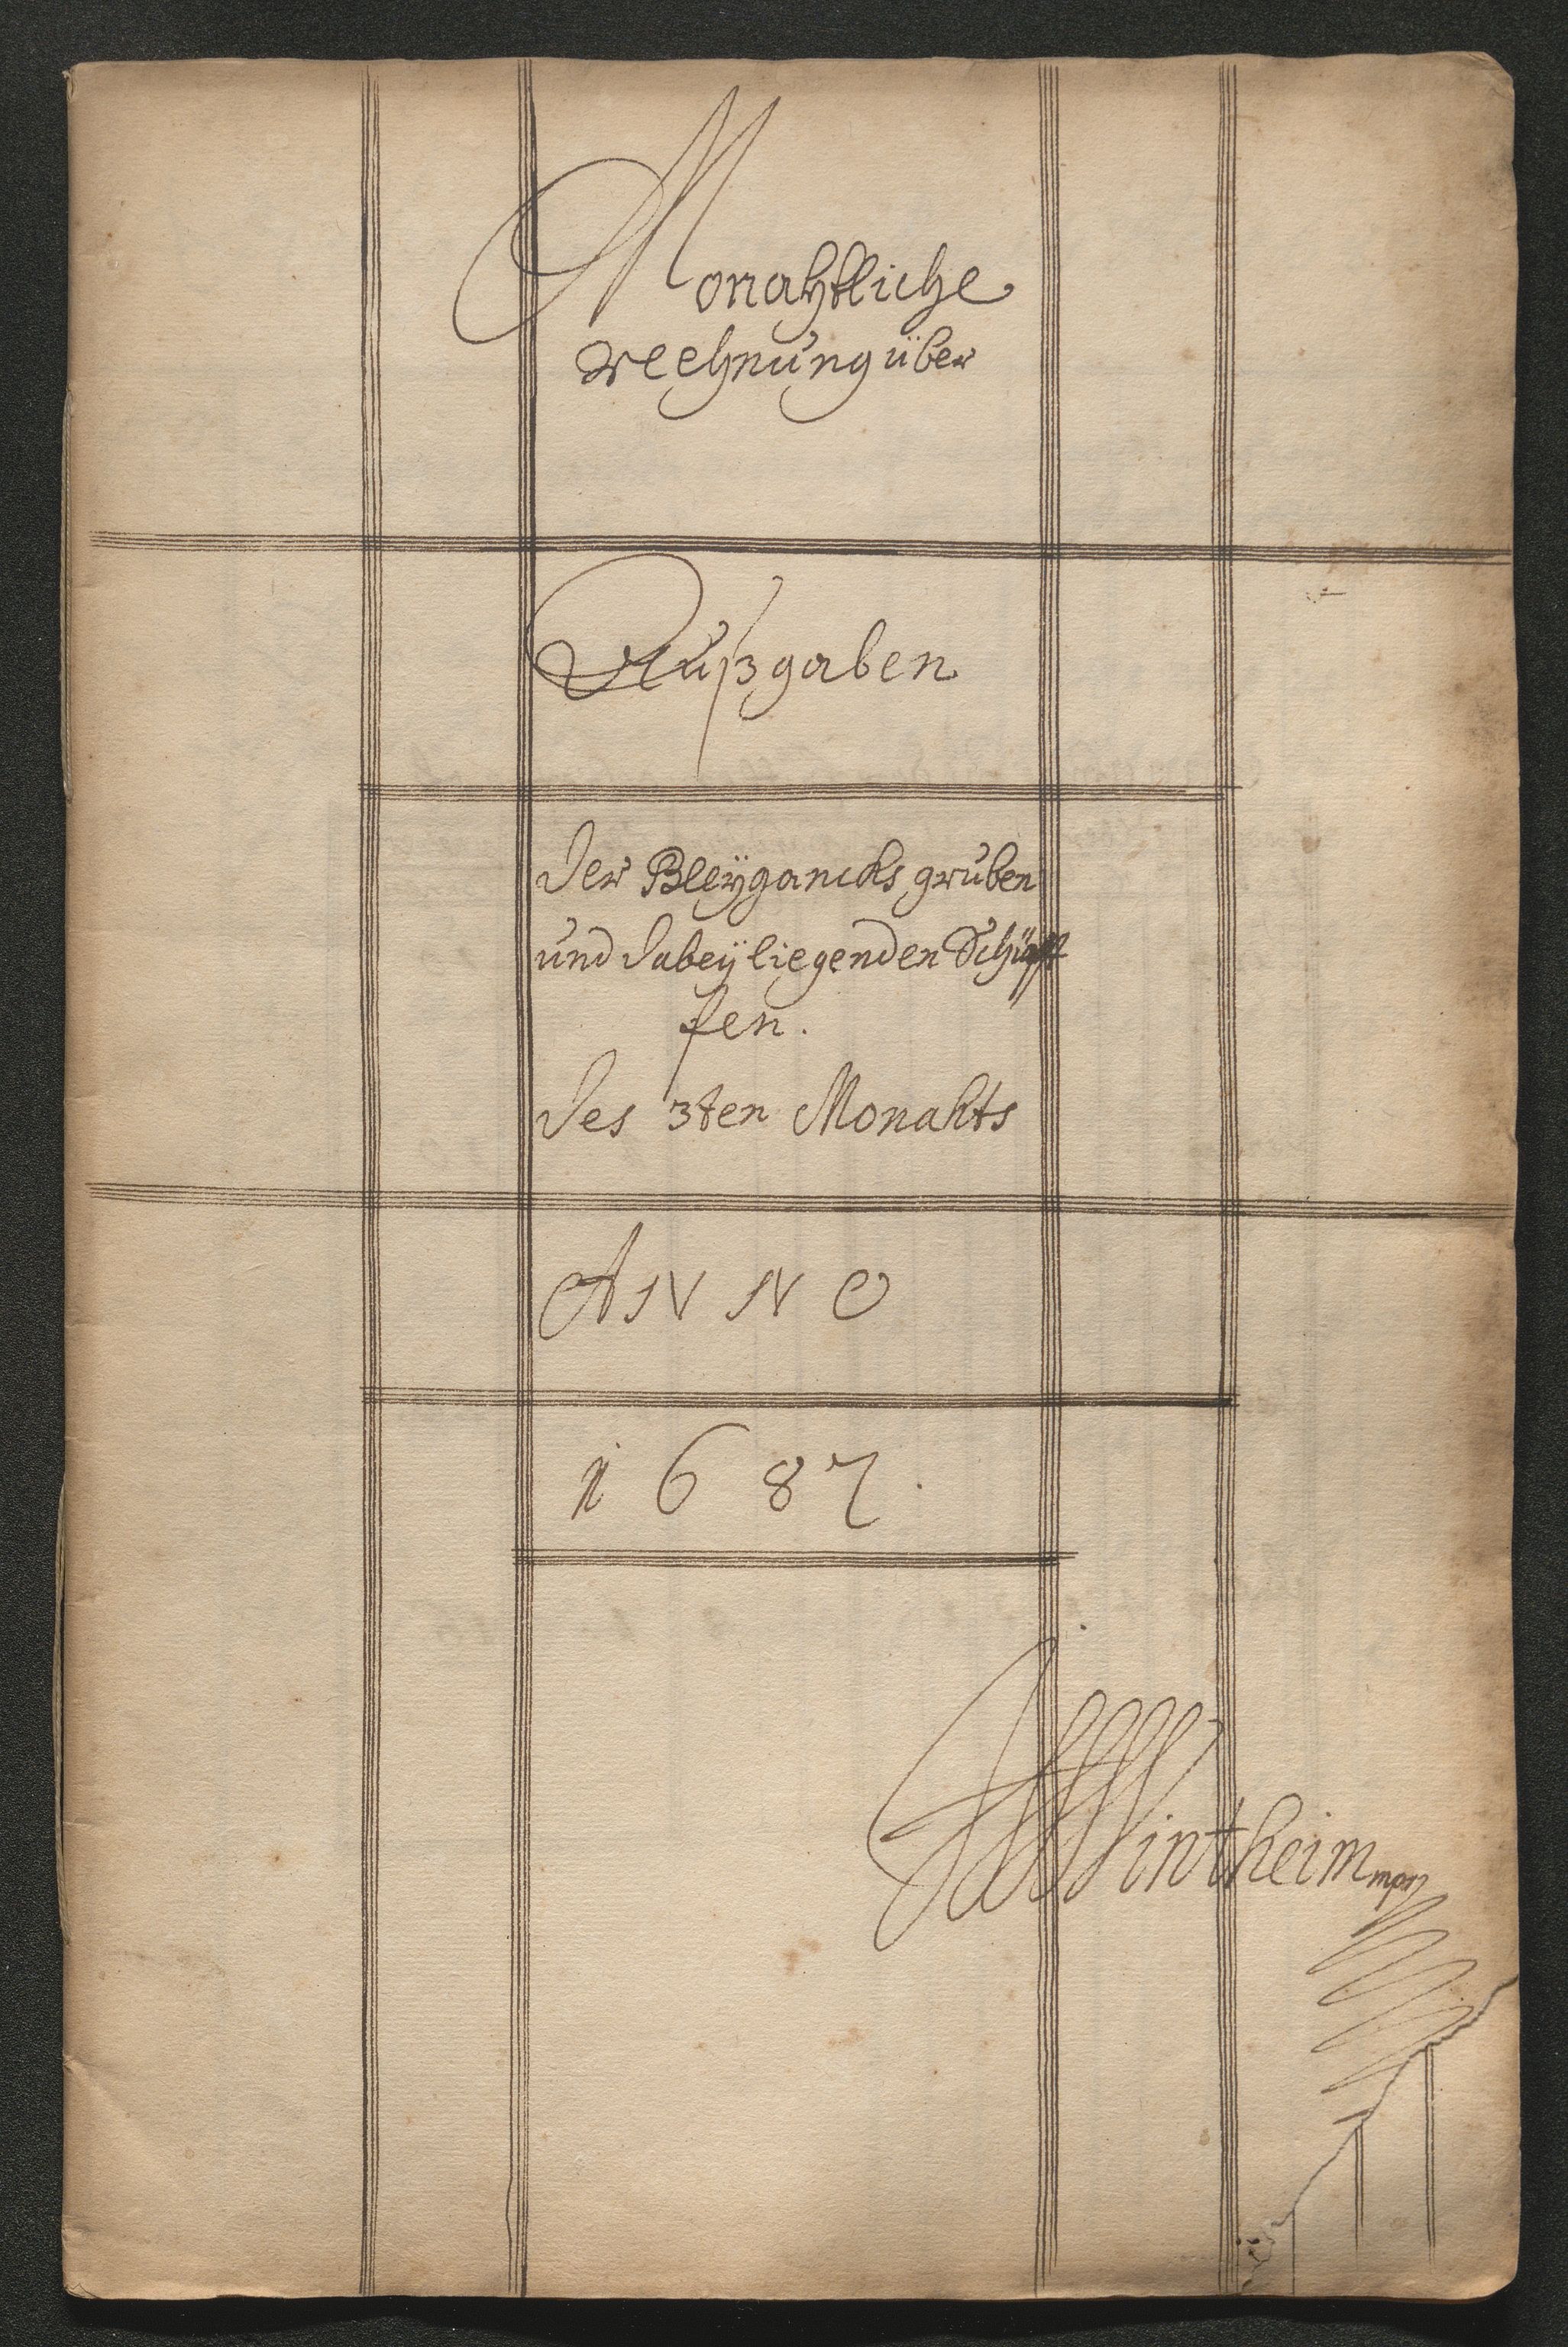 Monahtliche
Rechnung über
Außgaben
der Bleÿgancks gruben
und dabeÿ liegenden Schüpff
fen.
des 3ten Monahts
ANNO
1687.
Wintheim mpr